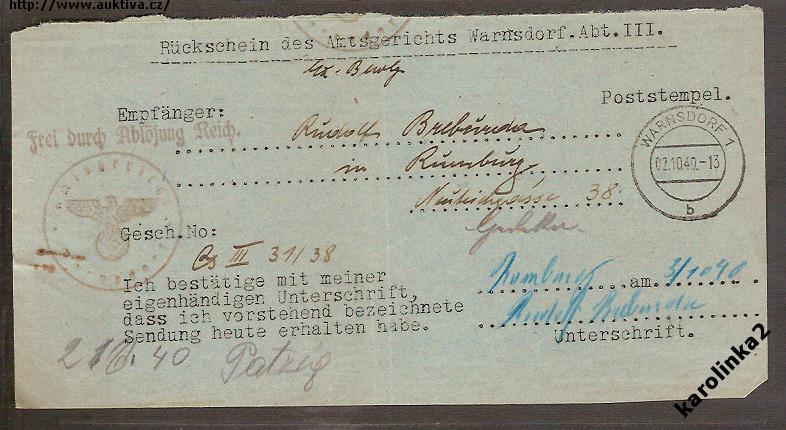 http://www.auktiva.cz/
Rückschein des Amtsgerichts Warnsdorf.Abt.III.
Empfänger:
Poststempel.
Frei durch Ablösung Reich.
Rudolf Breburda
in Rumburg,
38.
WARNSDORF 1
02.10.40.-13
b
Gesch.No:
Cg III 31/38
Ich bestätige mit meiner
eigenhändigen Unterschrift,
dass ich vorstehend bezeichnete
Sendung heute erhalten habe.
Rumburg am 3/10 40
Rudolf Breburda
Unterschrift.
40
karolinka2